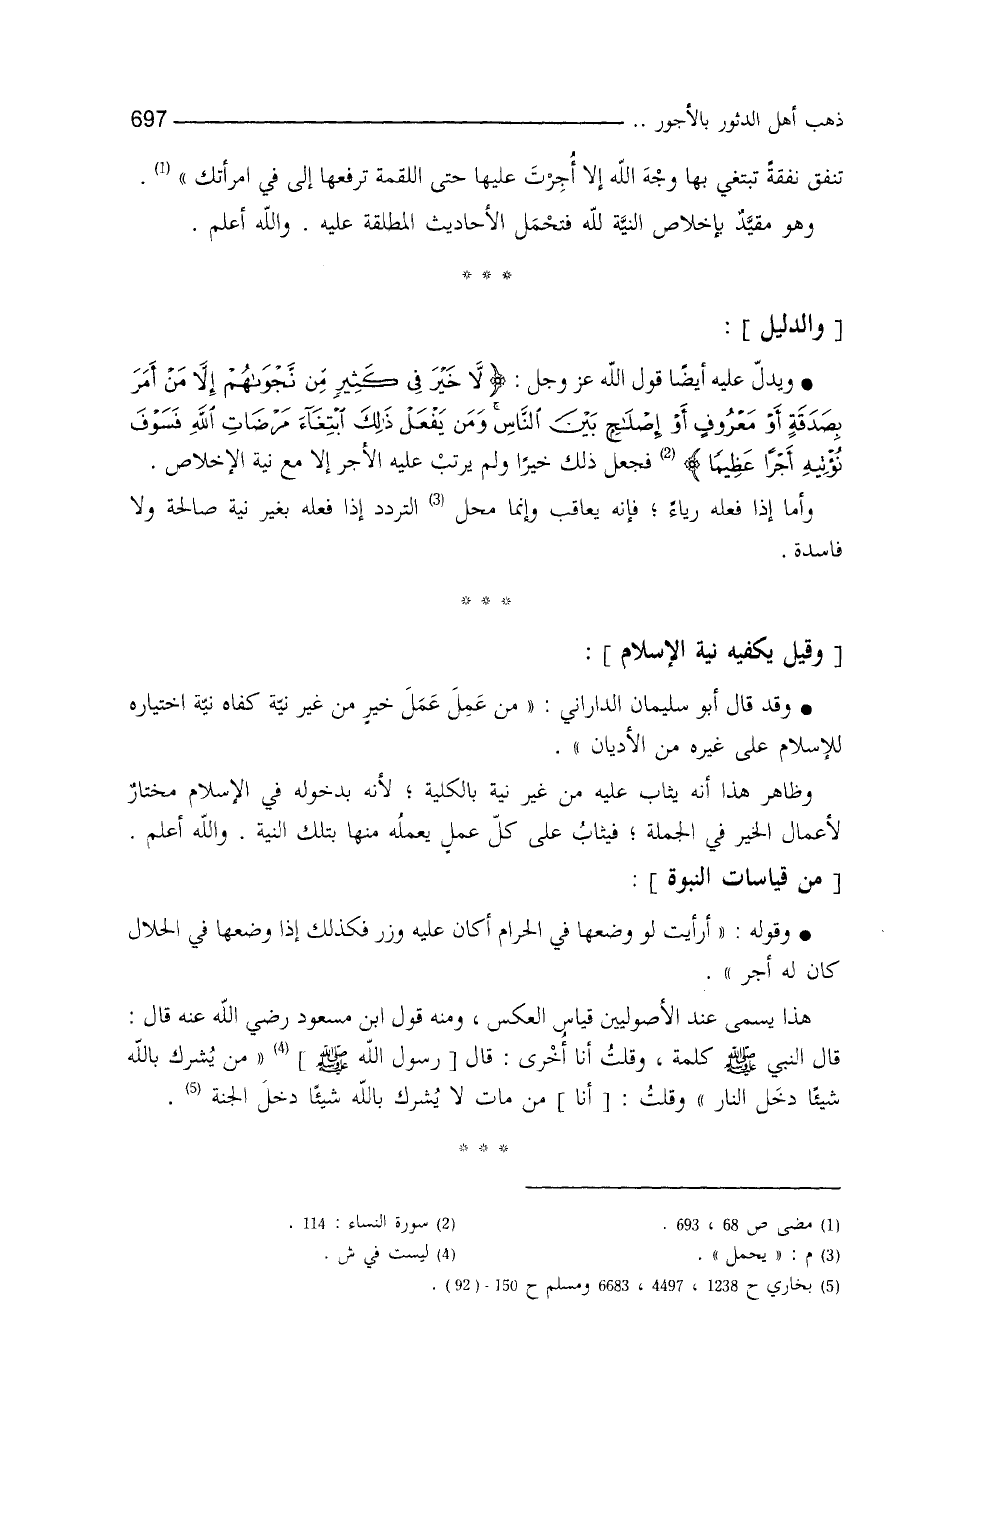 ذهب أهل الدثور بالأجور .. 697
تنفق نفقةً تبتغي بها وجْهَ اللّه إلا أُجِرْتَ عليها حتى اللقمة ترفعها إلى في امرأتك » (1) .
وهو مقيَّدٌ بإخلاص النيَّة للّه فتحْمَل الأحاديث المطلقة عليه . واللّه أعلم .
* * *
[ والدليل ] :
● ويدلّ عليه أيضًا قول اللّه عز وجل : ﴿ لَّا خَيْرَ فِي كَثِيرٍ مِّن نَّجْوَىٰهُمْ إِلَّا مَنْ أَمَرَ
بِصَدَقَةٍ أَوْ مَعْرُوفٍ أَوْ إِصْلَٰحٍ بَيْنَ ٱلنَّاسِ ۚ وَمَن يَفْعَلْ ذَٰلِكَ ٱبْتِغَآءَ مَرْضَاتِ ٱللَّهِ فَسَوْفَ
نُؤْتِيهِ أَجْرًا عَظِيمًا ﴾ (2) فجعل ذلك خيرًا ولم يرتبْ عليه الأجر إلا مع نية الإخلاص .
وأما إذا فعله رياءً ؛ فإنه يعاقب وإنما محل (3) التردد إذا فعله بغير نية صالحة ولا
فاسدة .
* * *
[ وقيل يكفيه نية الإسلام ] :
● وقد قال أبو سليمان الداراني : « من عَمِلَ عَمَلَ خيرٍ من غير نيّة كفاه نيّة اختياره
للإسلام على غيره من الأديان » .
وظاهر هذا أنه يثاب عليه من غير نية بالكلية ؛ لأنه بدخوله في الإسلام مختارٌ
لأعمال الخير في الجملة ؛ فيثابُ على كلّ عملٍ يعملُه منها بتلك النية . واللّه أعلم .
[ من قياسات النبوة ] :
● وقوله : « أرأيت لو وضعها في الحرام أكان عليه وزر فكذلك إذا وضعها في الحلال
كان له أجر » .
هذا يسمى عند الأصوليين قياس العكس ، ومنه قول ابن مسعود رضي اللّه عنه قال :
قال النبي ﷺ كلمة ، وقلتُ أنا أُخْرى : قال [ رسول اللّه ﷺ ] (4) « من يُشرك باللّه
شيئًا دخَل النار » وقلتُ : [ أنا ] من مات لا يُشرك باللّه شيئًا دخلَ الجنة (5) .
* * *
(1) مضى ص 68 ، 693 . (2) سورة النساء : 114 .
(3) م : « يحمل » . (4) ليست في ش .
(5) بخاري ح 1238 ، 4497 ، 6683 ومسلم ح 150 - ( 92 ) .